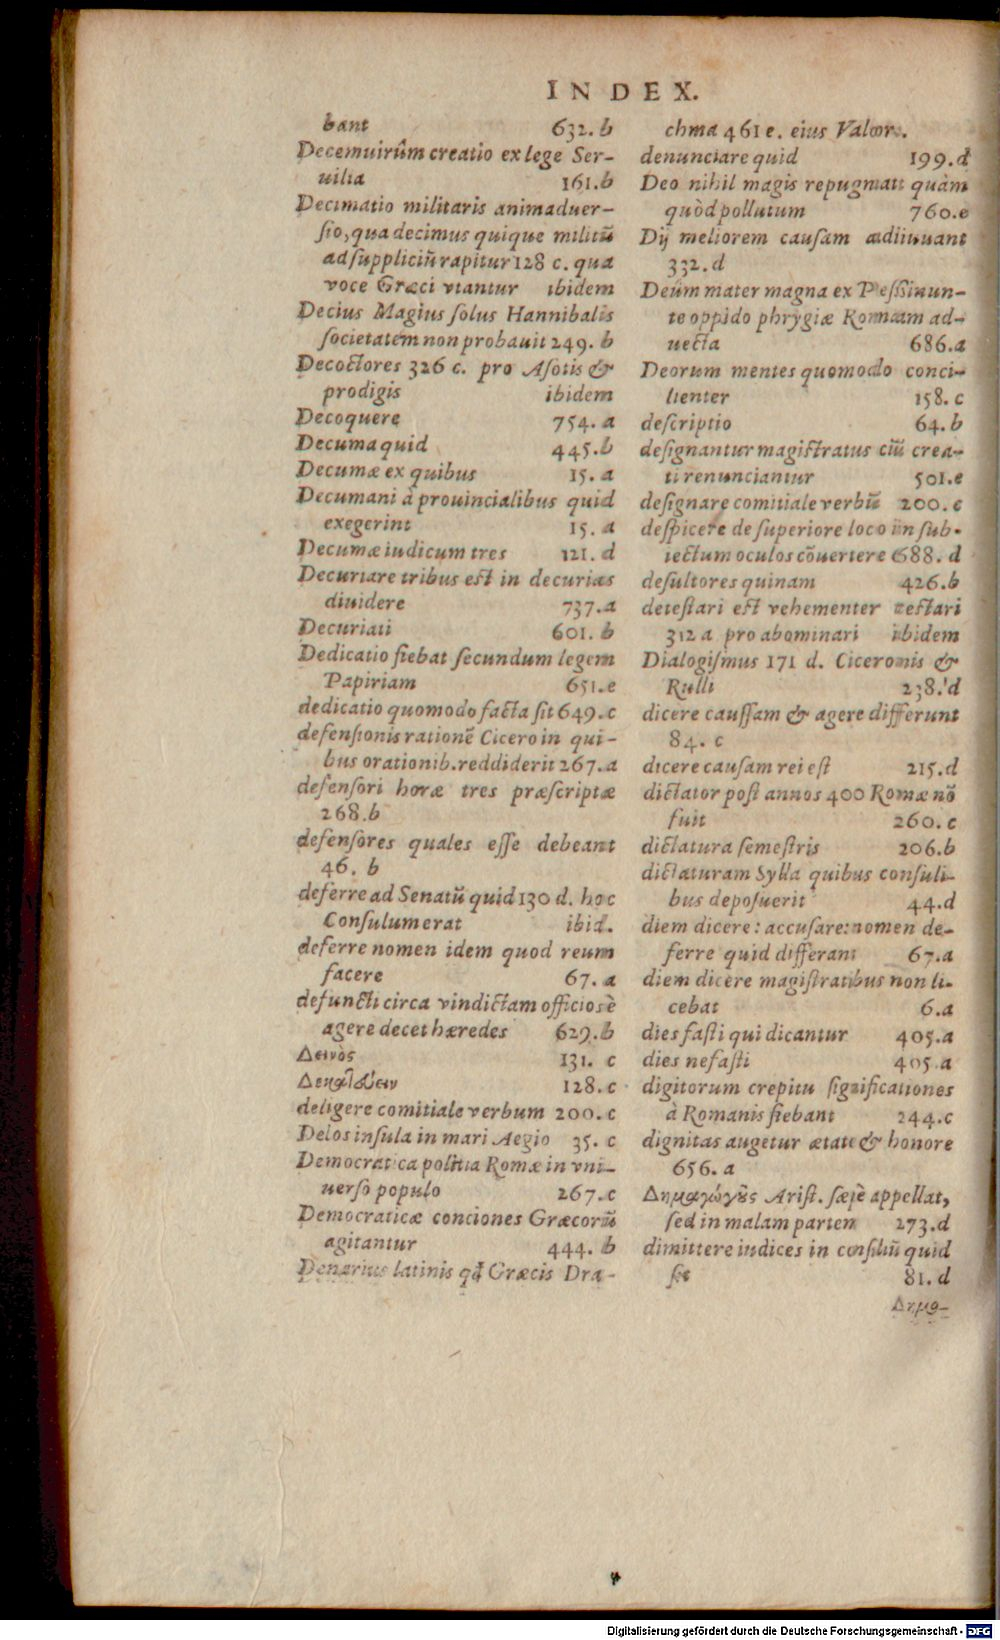 INDEX.
bant 632. b
Decemuirûm creatio ex lege Ser-
uilia 161.b
Decimatio militaris animaduer-
sio, qua decimus quique militũ
ad suppliciũ rapitur 128 c. qua
voce Græci vtantur ibidem
Decius Magius solus Hannibalis
societatem non probauit 249. b
Decoctores 326 c. pro Asotis &
prodigis ibidem
Decoquere 754. a
Decuma quid 445.b
Decumæ ex quibus 15. a
Decumani à prouincialibus quid
exegerint 15. a
Decumæ iudicum tres 121. d
Decuriare tribus est in decurias
diuidere 737.a
Decuriati 601. b
Dedicatio fiebat secundum legem
Papiriam 651.e
dedicatio quomodo facta sit 649.c
defensionis rationẽ Cicero in qui-
bus orationib. reddiderit 267.a
defensori horæ tres præscriptæ
268.b
defensores quales esse debeant
46. b
deferre ad Senatũ quid 130 d. hoc
Consulum erat ibid.
deferre nomen idem quod reum
facere 67. a
defuncti circa vindictam officiosè
agere decet hæredes 629.b
Δεινὸς 131. c
128.c
deligere comitiale verbum 200.c
Delos insula in mari Aegio 35. c
Democratica politia Romæ in vni-
uerso populo 267.c
Democraticæ conciones Græcorũ
agitantur 444. b
Denarius latinis qđ Græcis Dra-
chma 461 e. eius Valor.
denunciare quid 199.d
Deo nihil magis repugnat quàm
quòd pollutum 760.e
Dij meliorem causam adiuuant
332.d
Deûm mater magna ex Pessinun-
te oppido phrygiæ Romam ad-
uecta 686.a
Deorum mentes quomodo conci-
lienter 158. c
descriptio 64. b
designantur magistratus cũ crea-
ti renunciantur 501.e
designare comitiale verbũ 200. c
despicere de superiore loco in sub-
iectum oculos cõuertere 688. d
desultores quinam 426.b
detestari est vehementer testari
312 a pro abominari ibidem
Dialogismus 171 d. Ciceronis &
Rulli 238. d
dicere caussam & agere differunt
84. c
dicere causam rei est 215.d
dictator post annos 400 Romæ nõ
fuit 260. c
dictatura semestris 206.b
dictaturam Sylla quibus consuli-
bus deposuerit 44.d
diem dicere: accusare: nomen de-
ferre quid differant 67.a
diem dicere magistratibus non li-
cebat 6.a
dies fasti qui dicantur 405.a
dies nefasti 405.a
digitorum crepitu significationes
à Romanis fiebant 244.c
dignitas augetur ætate & honore
656. a
Δημαγώγȣς Arist. sæpè appellat,
sed in malam partem 273.d
dimittere iudices in consiliũ quid
sit 81. d
Δημο-
Digitalisierung gefördert durch die Deutsche Forschungsgemeinschaft - DFG